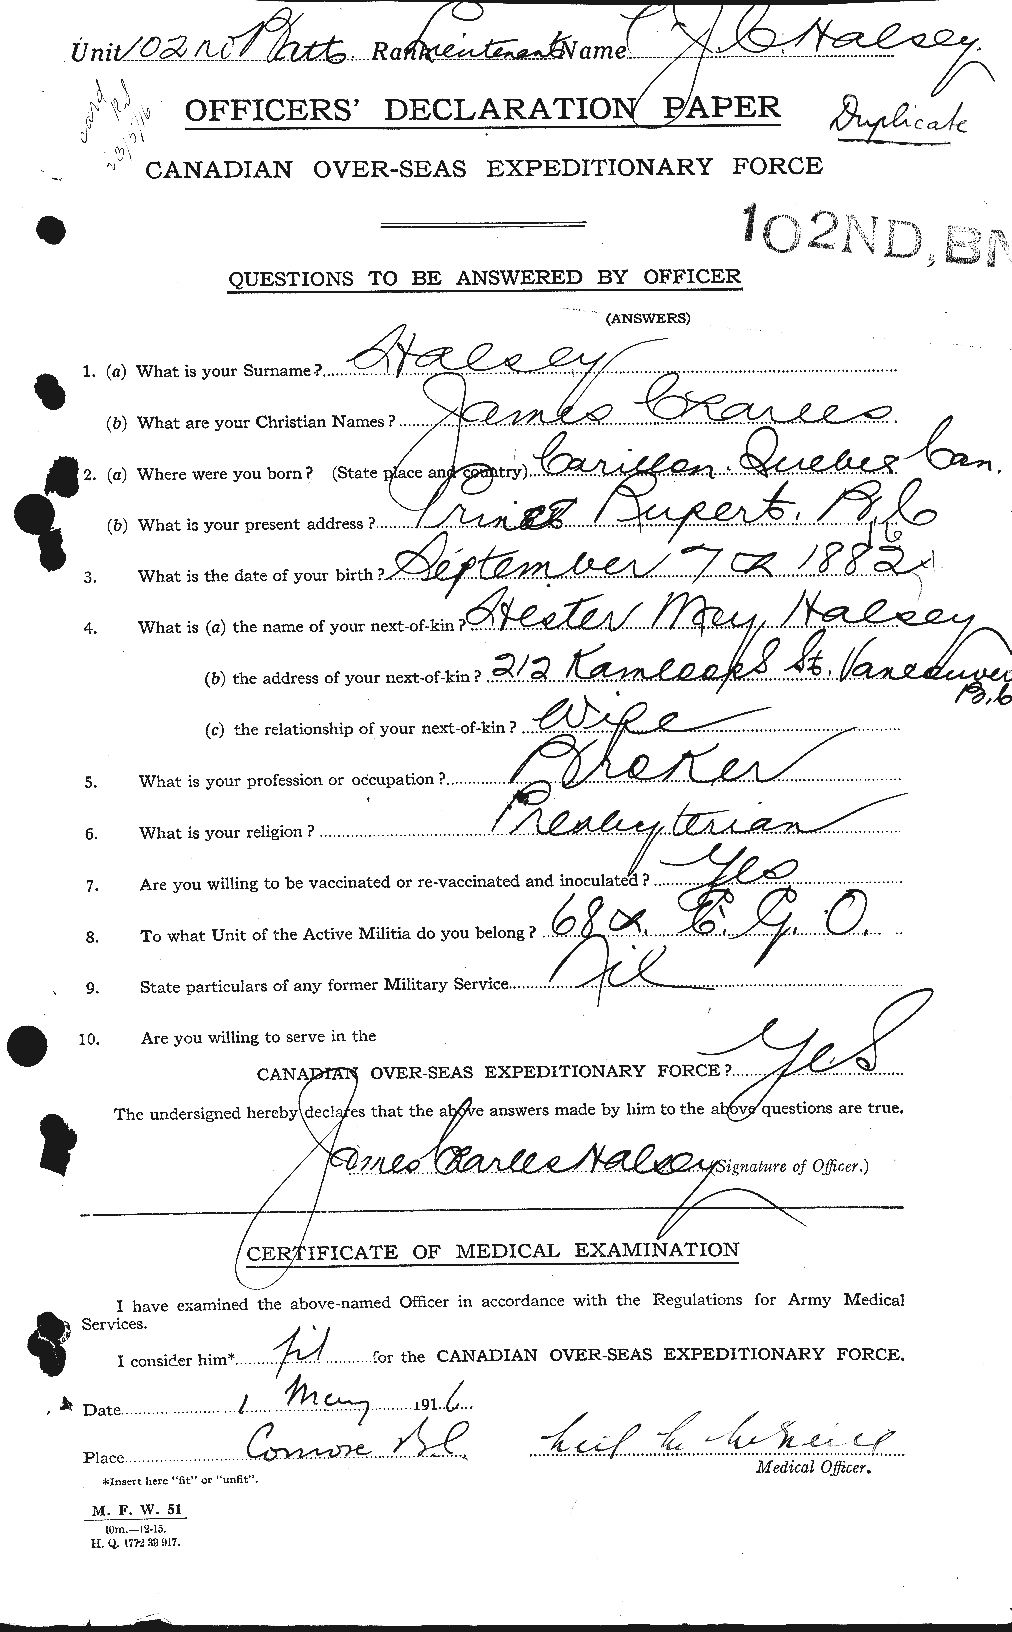 Unit 102nd Batt. Rank Lieutenant Name J. C. Halsey.
OFFICERS' DECLARATION PAPER
Duplicate
CANADIAN OVER-SEAS EXPEDITIONARY FORCE
102ND, BN
QUESTIONS TO BE ANSWERED BY OFFICER
(ANSWERS)
1. (a) What is your Surname? Halsey
(b) What are your Christian Names? James Charles
2. (a) Where were you born? (State place and country) Carillon. Quebec Can.
(b) What is your present address? Prince Rupert. B.C
3. What is the date of your birth? September 7th 1882
4. What is (a) the name of your next-of-kin? Hester May Halsey
(b) the address of your next-of-kin? 212 Kamloops St. Vancouver B.C
(c) the relationship of your next-of-kin? Wife
5. What is your profession or occupation? Broker
6. What is your religion? Presbyterian
7. Are you willing to be vaccinated or re-vaccinated and inoculated? Yes
8. To what Unit of the Active Militia do you belong? 68th E. G. O.
9. State particulars of any former Military Service. Nil
10. Are you willing to serve in the
CANADIAN OVER-SEAS EXPEDITIONARY FORCE? Yes
The undersigned hereby declares that the above answers made by him to the above questions are true.
James Charles Halsey (Signature of Officer.)
CERTIFICATE OF MEDICAL EXAMINATION
I have examined the above-named Officer in accordance with the Regulations for Army Medical
Services.
I consider him* fit for the CANADIAN OVER-SEAS EXPEDITIONARY FORCE.
Date 1 May 1916
Place Comox B.C.
Medical Officer.
*Insert here "fit" or "unfit".
M. F. W. 51
10m.—12-15.
H. Q. 1772 39 917.